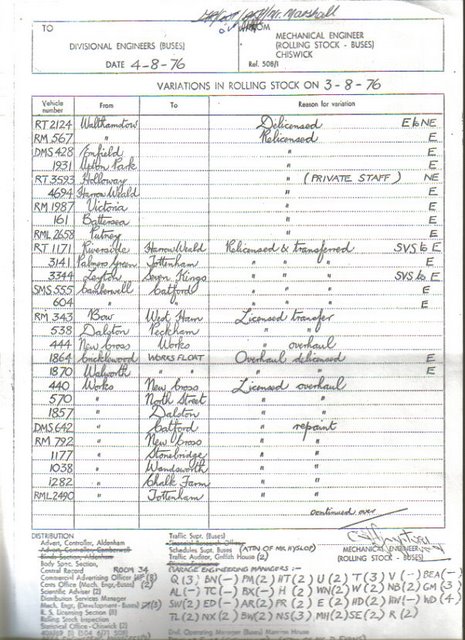 TO
FROM
DIVISIONAL ENGINEERS (BUSES)
MECHANICAL ENGINEER
(ROLLING STOCK - BUSES)
CHISWICK
DATE 4-8-76
Ref. 508/1
VARIATIONS IN ROLLING STOCK ON 3-8-76
Vehicle number From To Reason for variation
RT 2124 Walthamstow Delicensed E to NE
RM 567 " Relicensed E
DMS 428 Enfield " E
1931 Upton Park " E
RT 3593 Holloway " (PRIVATE STAFF) NE
4694 Harrow Weald " E
RM 1987 Victoria " E
161 Battersea " E
RML 2658 Putney " E
RT 1171 Riverside Harrow Weald Relicensed & transferred SVS to E
3141 Palmers Green Tottenham " " " E
3344 Leyton Seven Kings " " " SVS to E
SMS 555 Camberwell Catford " " " E
604 " " " " " E
RM 343 Bow West Ham Licensed transfer
538 Dalston Peckham " "
444 New Cross Works " overhaul
1864 Cricklewood WORKS FLOAT Overhaul delicensed E
1870 Walworth " " " " E
440 Works New Cross Licensed overhaul
570 " North Street " "
1857 " Dalston " "
DMS 642 " Catford " repaint
RM 792 " New Cross " "
1177 " Stonebridge " "
1038 " Wandsworth " "
1282 " Chalk Farm " "
RML 2490 " Tottenham " "
continued over
DISTRIBUTION
Advert. Controller, Aldenham
Body Spec. Section,
Central Record ROOM 34
Commercial Advertising Officer
Cents Office (Mech. Engr. Buses) (2)
Scientific Adviser (2)
Distribution Services Manager
Mech. Engr. (Development - Buses)
R. S. Licensing Section (1)
Rolling Stock Inspection
Statistical Office - Chiswick (2)
Traffic Supt. (Buses)
Schedules Supt. Buses (ATTN OF MR. HYSLOP)
Traffic Auditor, Griffith House (2)
MECHANICAL ENGINEER
(ROLLING STOCK - BUSES)
GARAGE ENGINEERING MANAGERS :-
Q (3) BN (-) PM (2) HT (2) U (2) T (3) V (-) BEA (-)
AL (-) TC (-) BX (-) H (2) WN (2) W (2) NB (2) GM (3)
SW (2) ED (-) AR (2) PR (2) E (2) HD (2) HW (-) WD (4)
TL (2) NX (2) BW (2) NS (3) MH (2) SE (2) R (2)